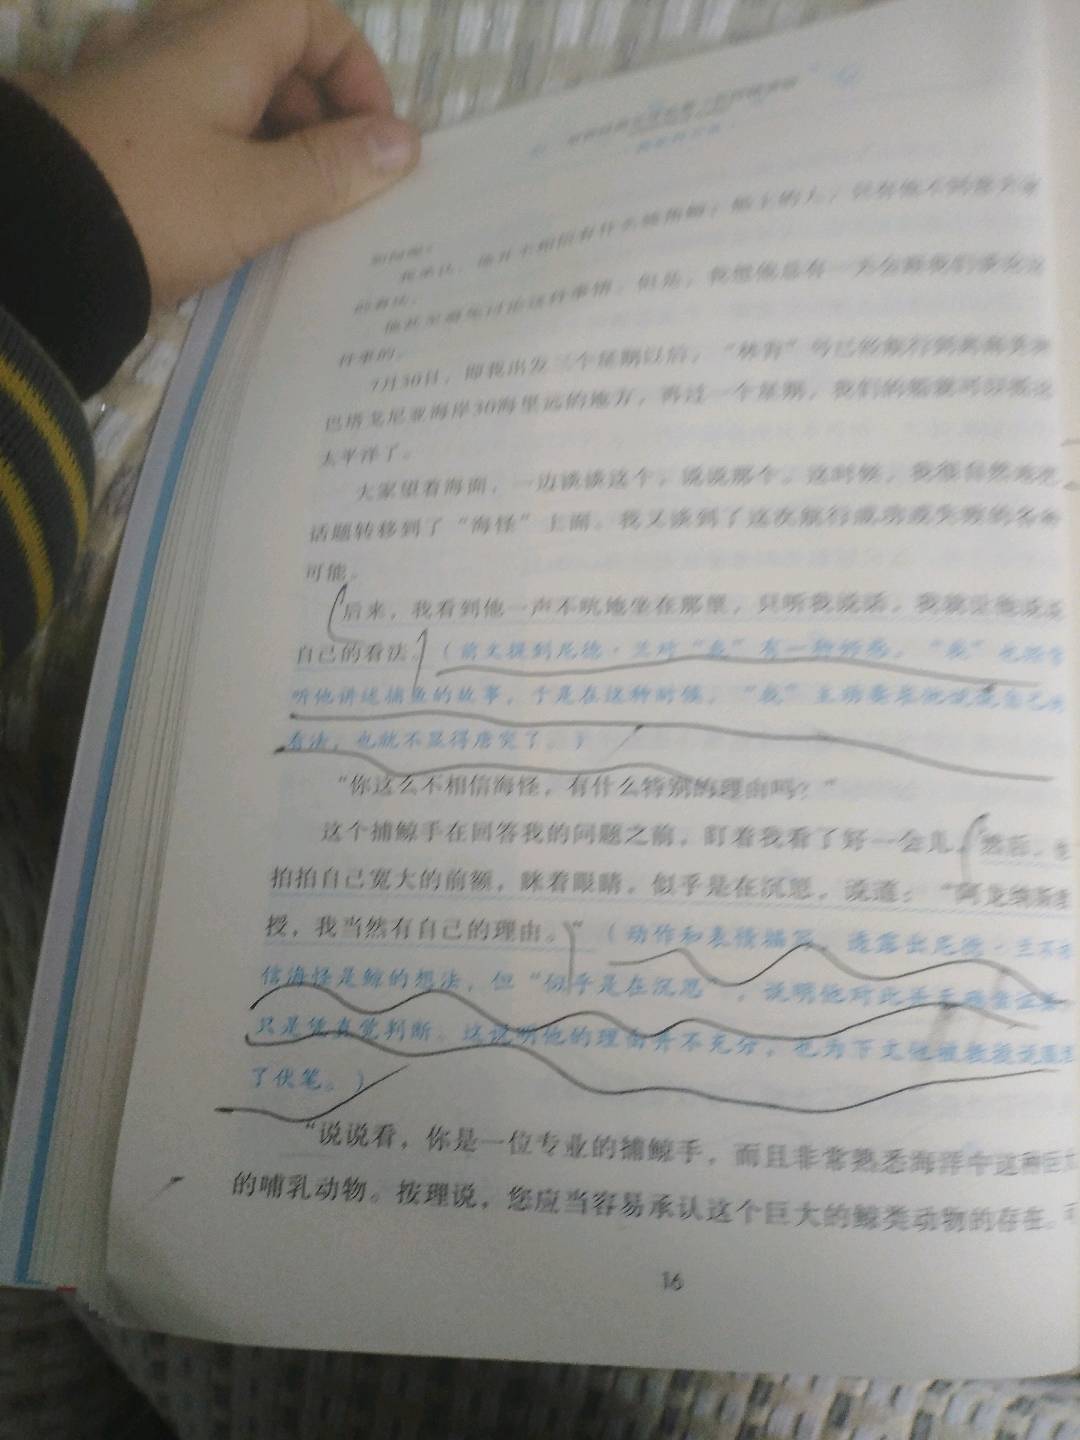 他并不相信有什么独角鲸；船上的人，只有他不同意
的看法。
他甚至避免讨论这件事情。但是，我想他总有一天会跟我们
件事的。
7月30日，即我出发三个星期以后，“林肯”号已经航行到离
巴塔戈尼亚海岸30海里远的地方，再过一个星期，我们的船就可以
太平洋了。
大家望着海面，一边谈谈这个，说说那个。这时候，我很自然地把
话题转移到了“海怪”上面。我又谈到了这次航行成功或失败的各种
可能。
后来，我看到他一声不吭地坐在那里，只听我说话，我就让他说说
自己的看法。（前文提到尼德·兰对“我”有一种好感，“我”也
听他讲述捕鱼的故事，于是在这种时候，“我”主动要求他说说自己的
看法，也就不显得唐突了。）
“你这么不相信海怪，有什么特别的理由吗？”
这个捕鲸手在回答我的问题之前，盯着我看了好一会儿。然后，他
拍拍自己宽大的前额，眯着眼睛，似乎是在沉思，说道：“阿龙纳斯教
授，我当然有自己的理由。”（动作和表情描写，透露出尼德·兰不相
信海怪是鲸的想法，但“似乎是在沉思”，说明他对此并
只是凭直觉判断。这说明他的理由并不充分，也为下文他被教授说服
了伏笔。）
“说说看，你是一位专业的捕鲸手，而且非常熟悉海洋中这种巨大
的哺乳动物。按理说，您应当容易承认这个巨大的鲸类动物的存在。
16